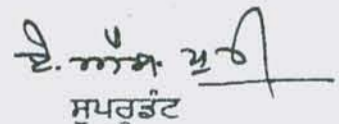 ਏ. ਐਸ. ਪੁਰੀ
ਸੁਪਰਡੰਟ